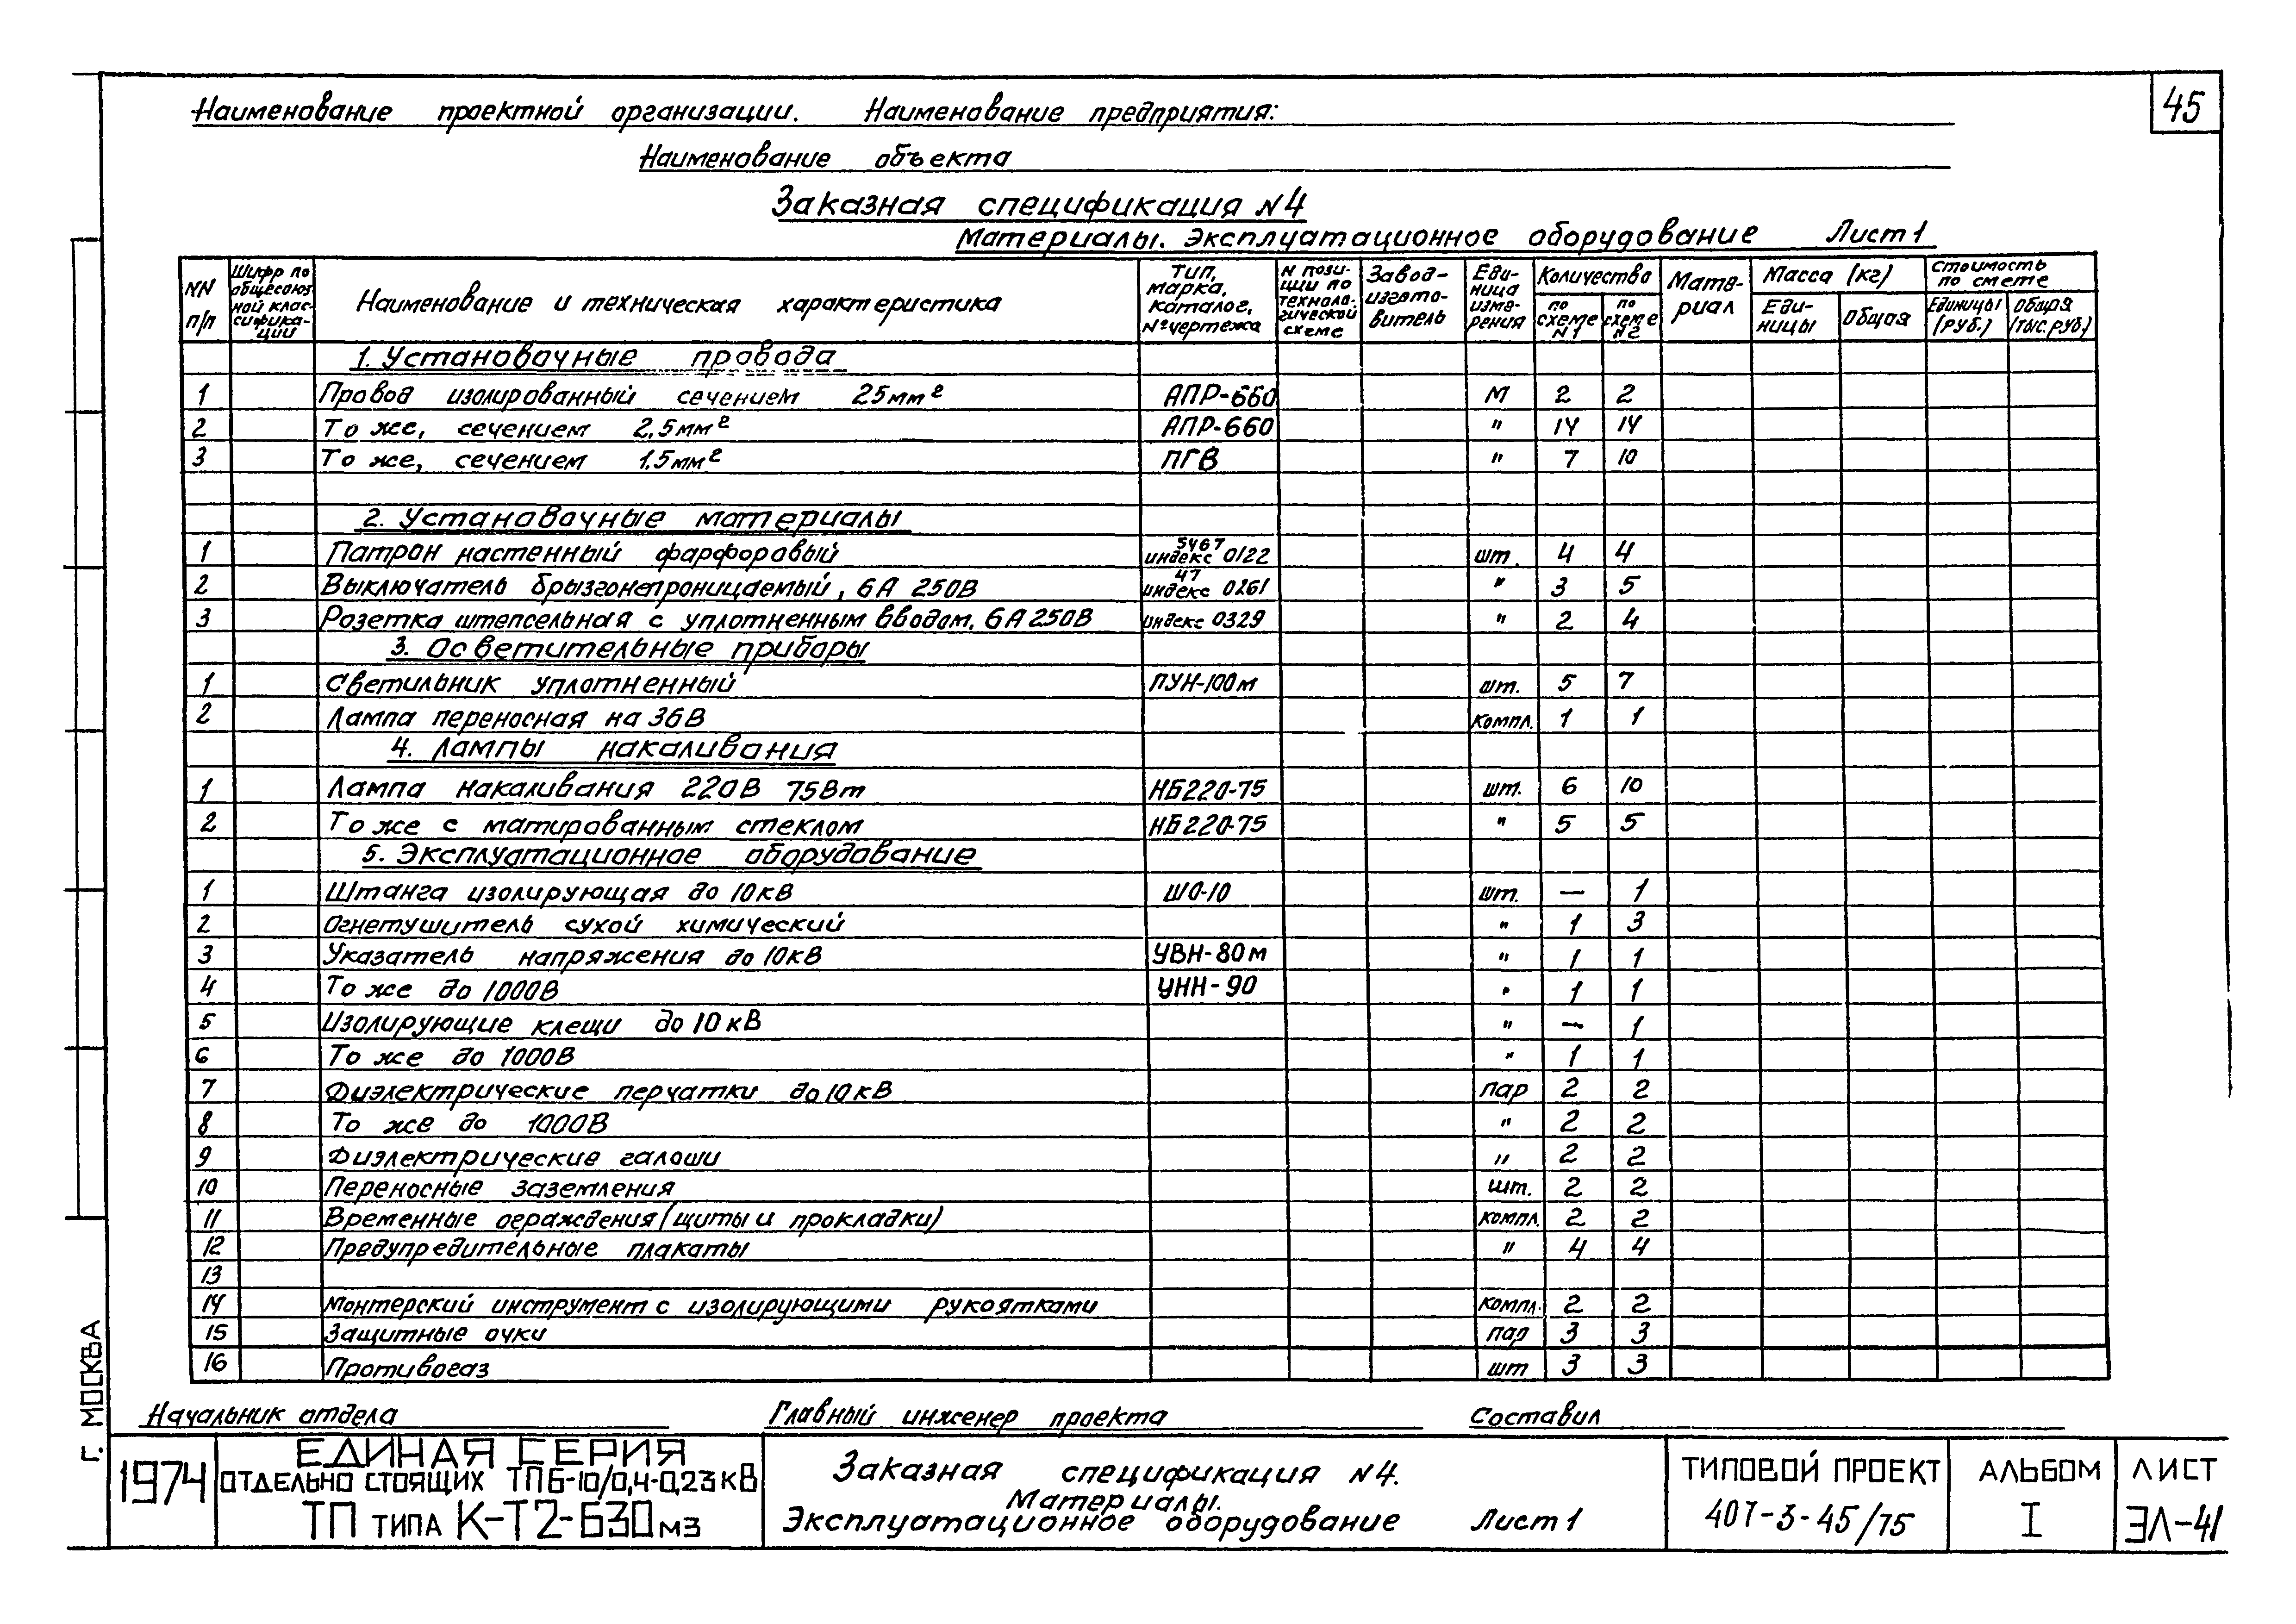 45
Наименование проектной организации. Наименование предприятия:
Наименование объекта
Заказная спецификация N4
Материалы. Эксплуатационное оборудование Лист 1
NN п/п
Шифр по общесоюзной классификации
Наименование и техническая характеристика
Тип, марка, каталог, № чертежа
N позиции по технологической схеме
Завод-изготовитель
Единица измерения
Количество
по схеме N1
по схеме N2
Материал
Масса (кг)
Единицы
Общая
Стоимость по смете
Единицы (руб.)
Общая (тыс. руб.)
1. Установочные провода
1 Провод изолированный сечением 25мм² АПР-660 м 2 2
2 То же, сечением 2,5мм² АПР-660 " 14 14
3 То же, сечением 1,5мм² ПГВ " 7 10
2. Установочные материалы
1 Патрон настенный фарфоровый 5467 индекс 0122 шт. 4 4
2 Выключатель брызгонепроницаемый, 6А 250В 47 индекс 0261 " 3 5
3 Розетка штепсельная с уплотненным вводом, 6А 250В индекс 0329 " 2 4
3. Осветительные приборы
1 Светильник уплотненный ПУН-100м шт. 5 7
2 Лампа переносная на 36В компл. 1 1
4. Лампы накаливания
1 Лампа накаливания 220В 75Вт НБ220-75 шт. 6 10
2 То же с матированным стеклом НБ220-75 " 5 5
5. Эксплуатационное оборудование
1 Штанга изолирующая до 10кВ ШО-10 шт. — 1
2 Огнетушитель сухой химический " 1 3
3 Указатель напряжения до 10кВ УВН-80м " 1 1
4 То же до 1000В УНН-90 " 1 1
5 Изолирующие клещи до 10кВ " — 1
6 То же до 1000В " 1 1
7 Диэлектрические перчатки до 10кВ пар 2 2
8 То же до 1000В " 2 2
9 Диэлектрические галоши " 2 2
10 Переносные заземления шт. 2 2
11 Временные ограждения (щиты и прокладки) компл. 2 2
12 Предупредительные плакаты " 4 4
13
14 Монтерский инструмент с изолирующими рукоятками компл. 2 2
15 Защитные очки пар 3 3
16 Противогаз шт 3 3
Начальник отдела Главный инженер проекта Составил
г. МОСКВА
1974
ЕДИНАЯ СЕРИЯ
ОТДЕЛЬНО СТОЯЩИХ ТП6-10/0,4-0,23кВ
ТП ТИПА К-Т2-630 м3
Заказная спецификация N4.
Материалы.
Эксплуатационное оборудование Лист 1
ТИПОВОЙ ПРОЕКТ
407-3-45/75
АЛЬБОМ
I
ЛИСТ
ЭЛ-41